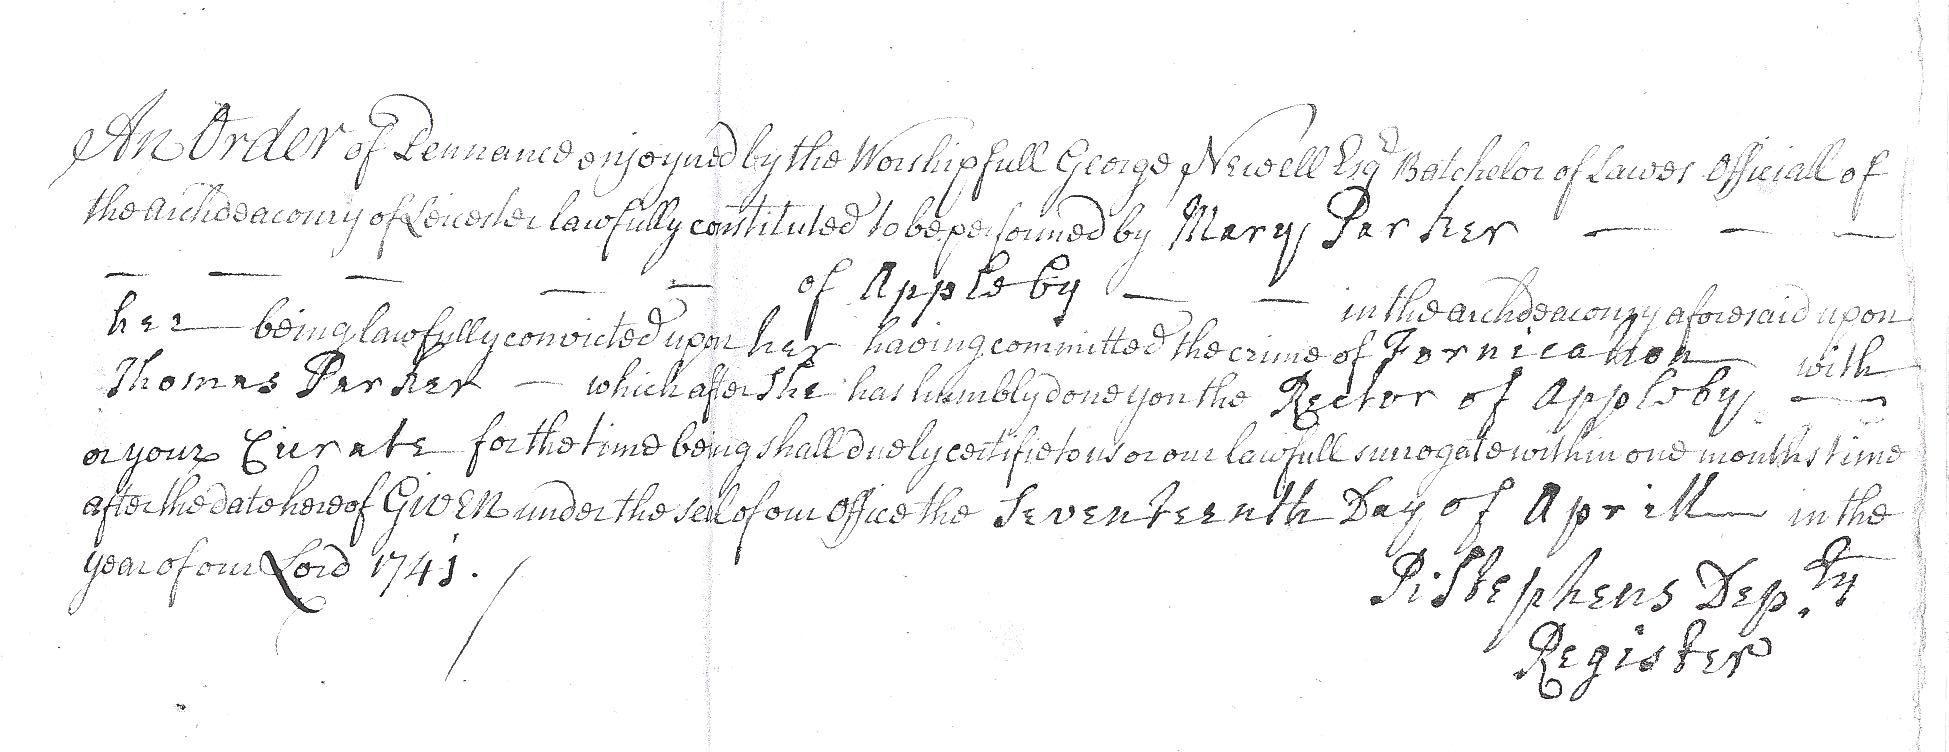 An Order of Pennance enjoyned by the Worshipfull George Newell Esqr Batchelor of Lawes Officiall of
the archdeaconry of Leicester lawfully constituted to be performed by Mary Parker — — —
— — — — — of Appleby — — in the archdeaconry aforesaid upon
her — being lawfully convicted upon her having committed the crime of Fornication — with
Thomas Parker — which after She has humbly done you the Rector of Appleby —
or your Curate for the time being shall duely certifie to us or our lawfull surrogate within one months time
after the date hereof GIVEN under the seal of our office the Seventeenth Day of Aprill — in the
year of our Lord 1741.
Ri Stephens Dep.ty
Register